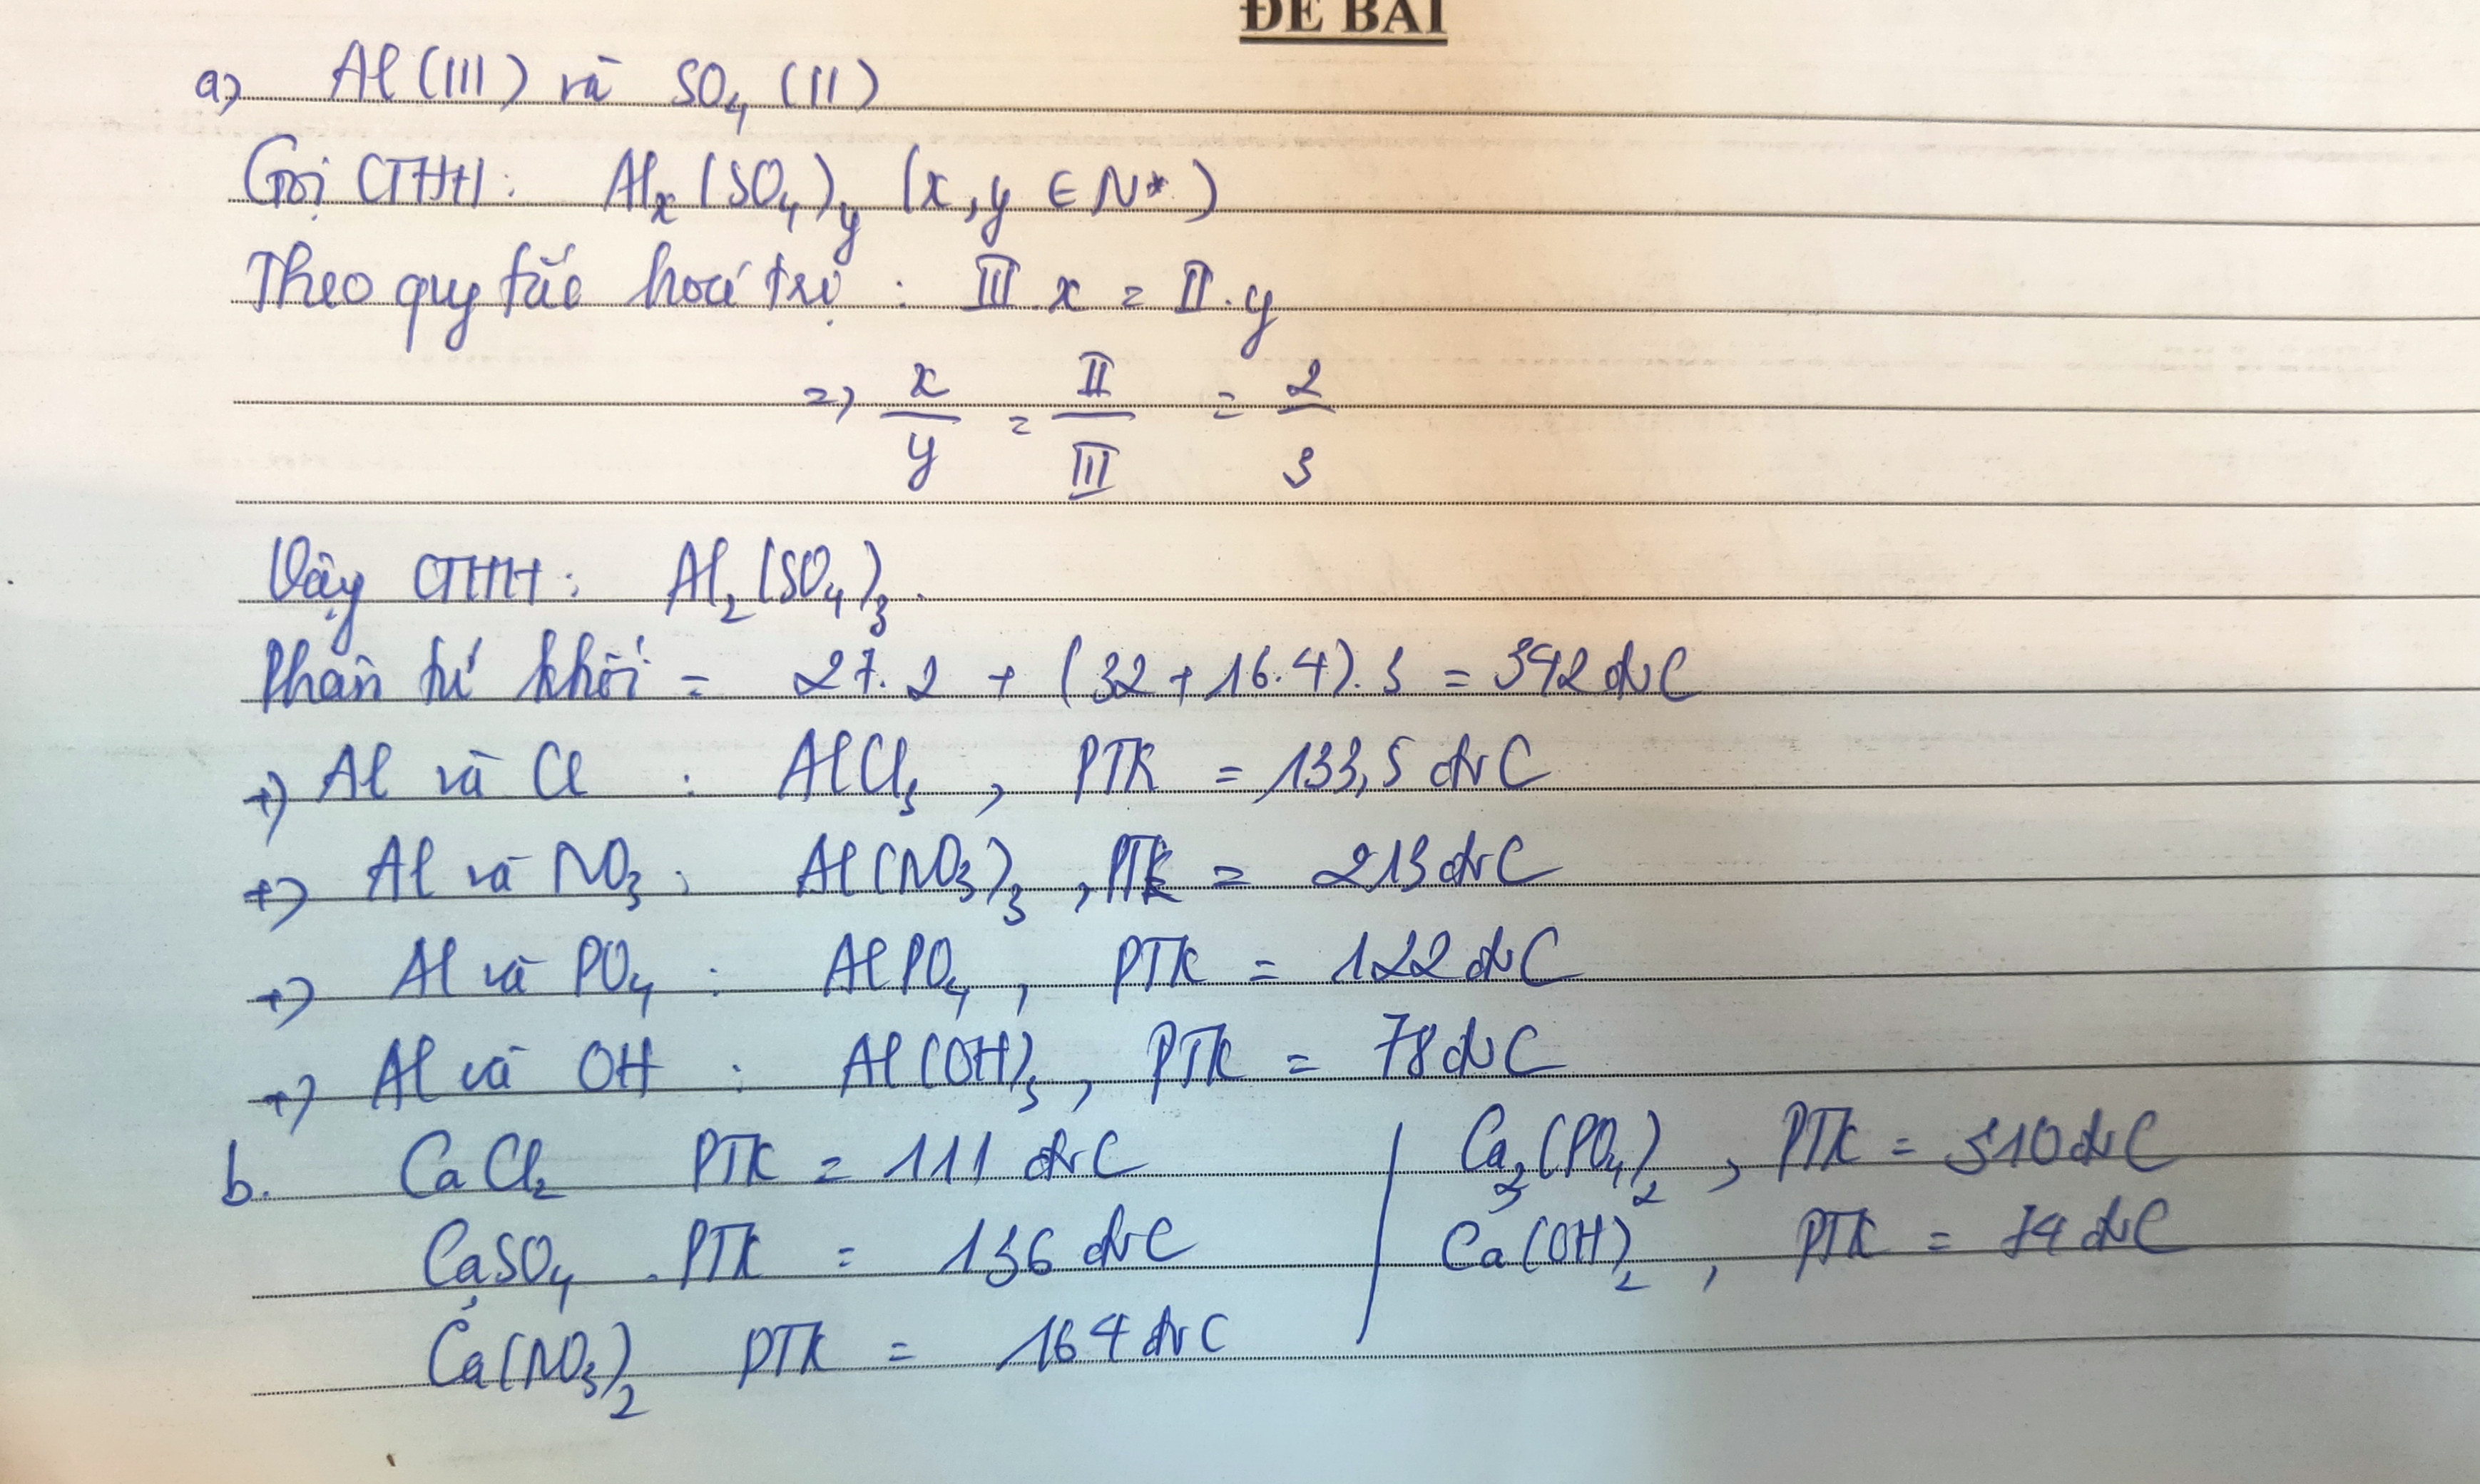 ĐỀ BÀI
a) Al (III) và SO₄ (II)
Gọi CTHH: Alₓ(SO₄)y (x, y ∈ N*)
Theo quy tắc hoá trị : III.x = II.y
=> x/y = II/III = 2/3
Vậy CTHH: Al₂(SO₄)₃.
Phân tử khối = 27.2 + (32 + 16.4).3 = 342 đvC
+) Al và Cl : AlCl₃, PTK = 133,5 đvC
+) Al và NO₃ : Al(NO₃)₃, PTK = 213 đvC
+) Al và PO₄ : AlPO₄, PTK = 122 đvC
+) Al và OH : Al(OH)₃, PTK = 78 đvC
b. CaCl₂ PTK = 111 đvC
CaSO₄. PTK = 136 đvC
Ca(NO₃)₂ PTK = 164 đvC
Ca₃(PO₄)₂, PTK = 310 đvC
Ca(OH)₂, PTK = 74 đvC